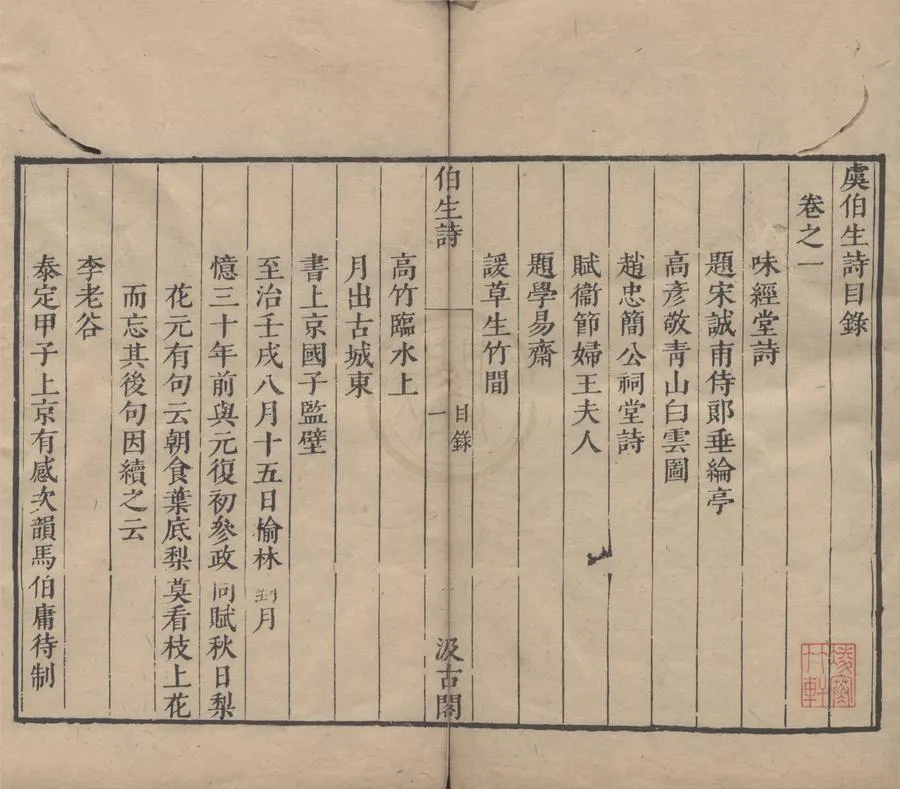 虞伯生詩目錄
卷之一
味經堂詩
題宋誠甫侍郎垂綸亭
高彥敬青山白雲圖
趙忠簡公祠堂詩
賦衞節婦王夫人
題學易齋
諼草生竹間
伯生詩
目錄
一
汲古閣
高竹臨水上
月出古城東
書上京國子監壁
至治壬戌八月十五日榆林對月
憶三十年前與元復初參政同賦秋日梨
花元有句云朝食葉底梨莫看枝上花
而忘其後句因續之云
李老谷
泰定甲子上京有感次韻馬伯庸待制